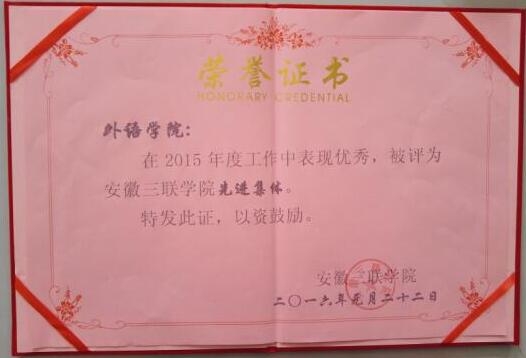 荣誉证书
HONORARY CREDENTIAL
外语学院：
在 2015 年度工作中表现优秀，被评为
安徽三联学院先进集体。
特发此证，以资鼓励。
安徽三联学院
二〇一六年元月二十二日